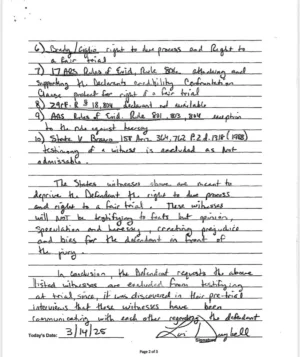 6) Brady Giglio right to due process and Right to
a fair trial
7) 17 ARS Rules of Evid, Rule 806 attacking and
supporting the Declarants credibility Confrontation
Clause protect for right of a fair trial
8) 18, 804 declarant not available
9) ARS Rules of Evid. Rule 801, 803, 804 exception
to the rule against hearsay
10) State v Brown, 158 Ariz. 364, 762 P.2d. 1318 (1988)
testimony of a witness is excluded as Not
admissable.
The States witnesses above are meant to
deprive th Defendant th right to due process
and right to a fair trial. These witnesses
will not be testifying to facts but opinion,
Speculation and hearsay, creating prejudice
and bias for the defendant in front of
the jury.
In conclusion, the Defendant requests the above
listed witnesses are excluded from testifying
at trial, since, it was discovered in their pre-trial
interviews that these witnesses have been
communicating with each other regarding the defendant
Today's Date: 3/14/25
Page 3 of 3